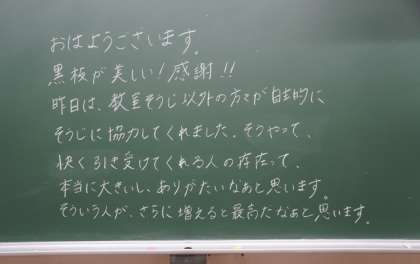 おはようございます。
黒板が美しい!感謝!!
昨日は、教室そうじ以外の方々が自主的に
そうじに協力してくれました。そうやって、
快く引き受けてくれる人の存在って、
本当に大きいし、ありがたいなあと思います。
そういう人が、さらに増えると最高だなあと、思います。